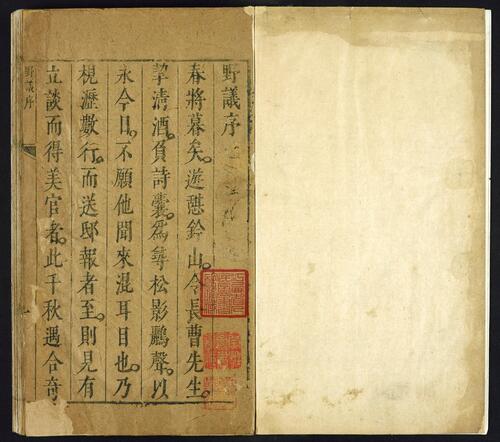 野議序
春將暮矣。遊憇鈐山。令長曹先生。
挈清酒。負詩囊。為尋松影鸝聲。以
永今日。不願他聞來混耳目也。乃
梘瀝數行。而送邸報者至。則見有
立談而得美官者。此千秋遇合奇
野議序